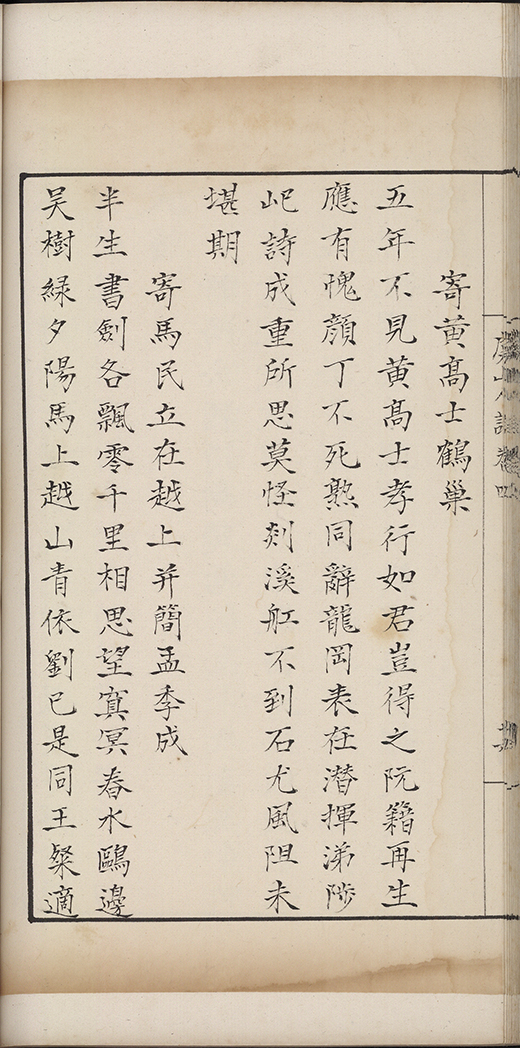 山人詩卷四
寄黃髙士鶴巢
五年不見黃髙士孝行如君豈得之阮籍再生
應有愧顔丁不死熟同辭龍岡表在潛揮涕陟
屺詩成重所思莫怪剡溪舡不到石尤風阻未
堪期
寄馬民立在越上并簡孟季成
半生書劍各飄零千里相思望寘冥春水鷗邊
吴樹緑夕陽馬上越山青依劉已是同王粲適